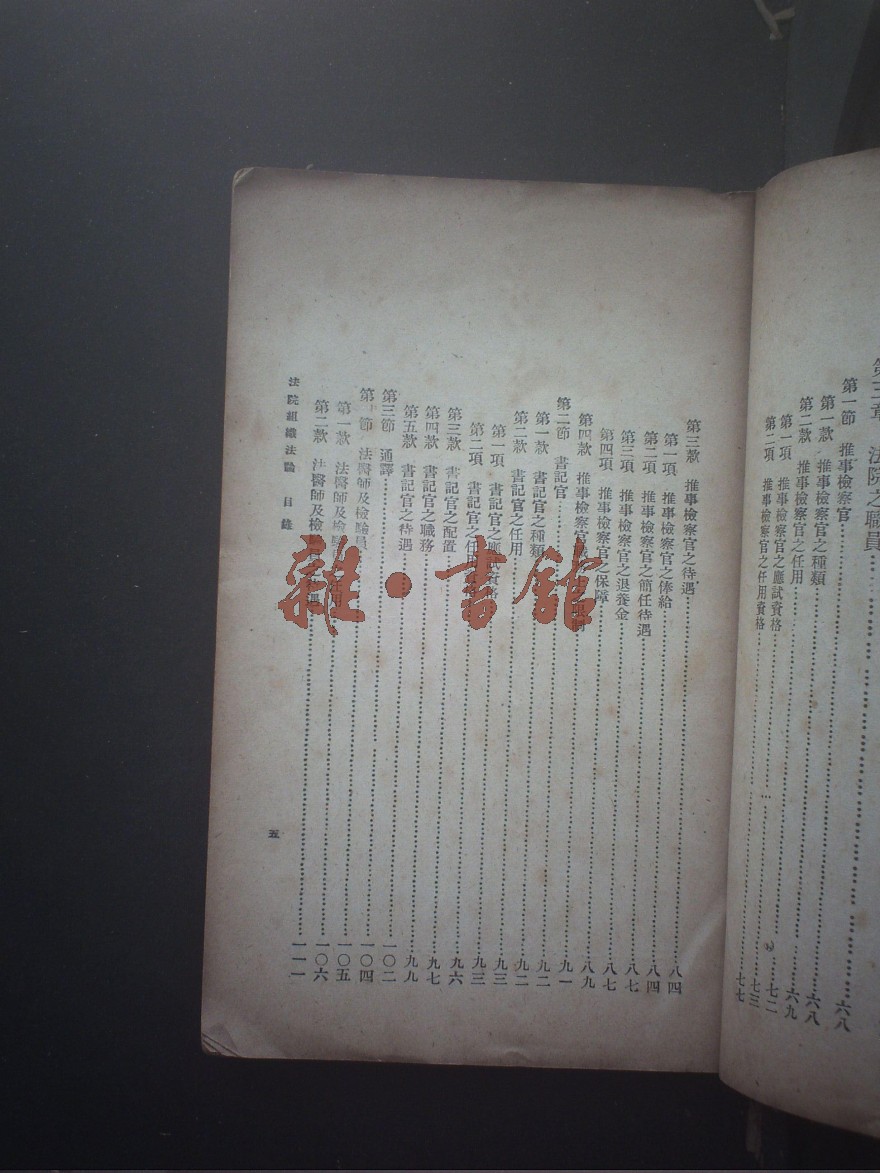 第三章 法院之職員……六八
第一節 推事檢察官……六八
第一款 推事檢察官之種類……六九
第二款 推事檢察官之任用……七二
第一項 推事檢察官之應試資格……七三
第二項 推事檢察官之任用資格……七七
第三款 推事檢察官之待遇……八四
第一項 推事檢察官之俸給……八四
第二項 推事檢察官之簡任待遇……八七
第三項 推事檢察官之退養金……八七
第四項 推事檢察官之保障……八九
第四款 推事檢察官……九一
第二節 書記官……九二
第一款 書記官之種類……九二
第二款 書記官之任用……九三
第一項 書記官之應試資格……九三
第二項 書記官之任用……九六
第三款 書記官之配置……九七
第四款 書記官之職務……九九
第五款 書記官之待遇……一〇二
第三節 通譯……一〇四
第 節 法醫師及檢驗員……一〇五
第一款 法醫師及檢驗 用……一〇六
第二款 法醫師及檢 遇……一一一
法院組織法論 目錄
五
雜·書館